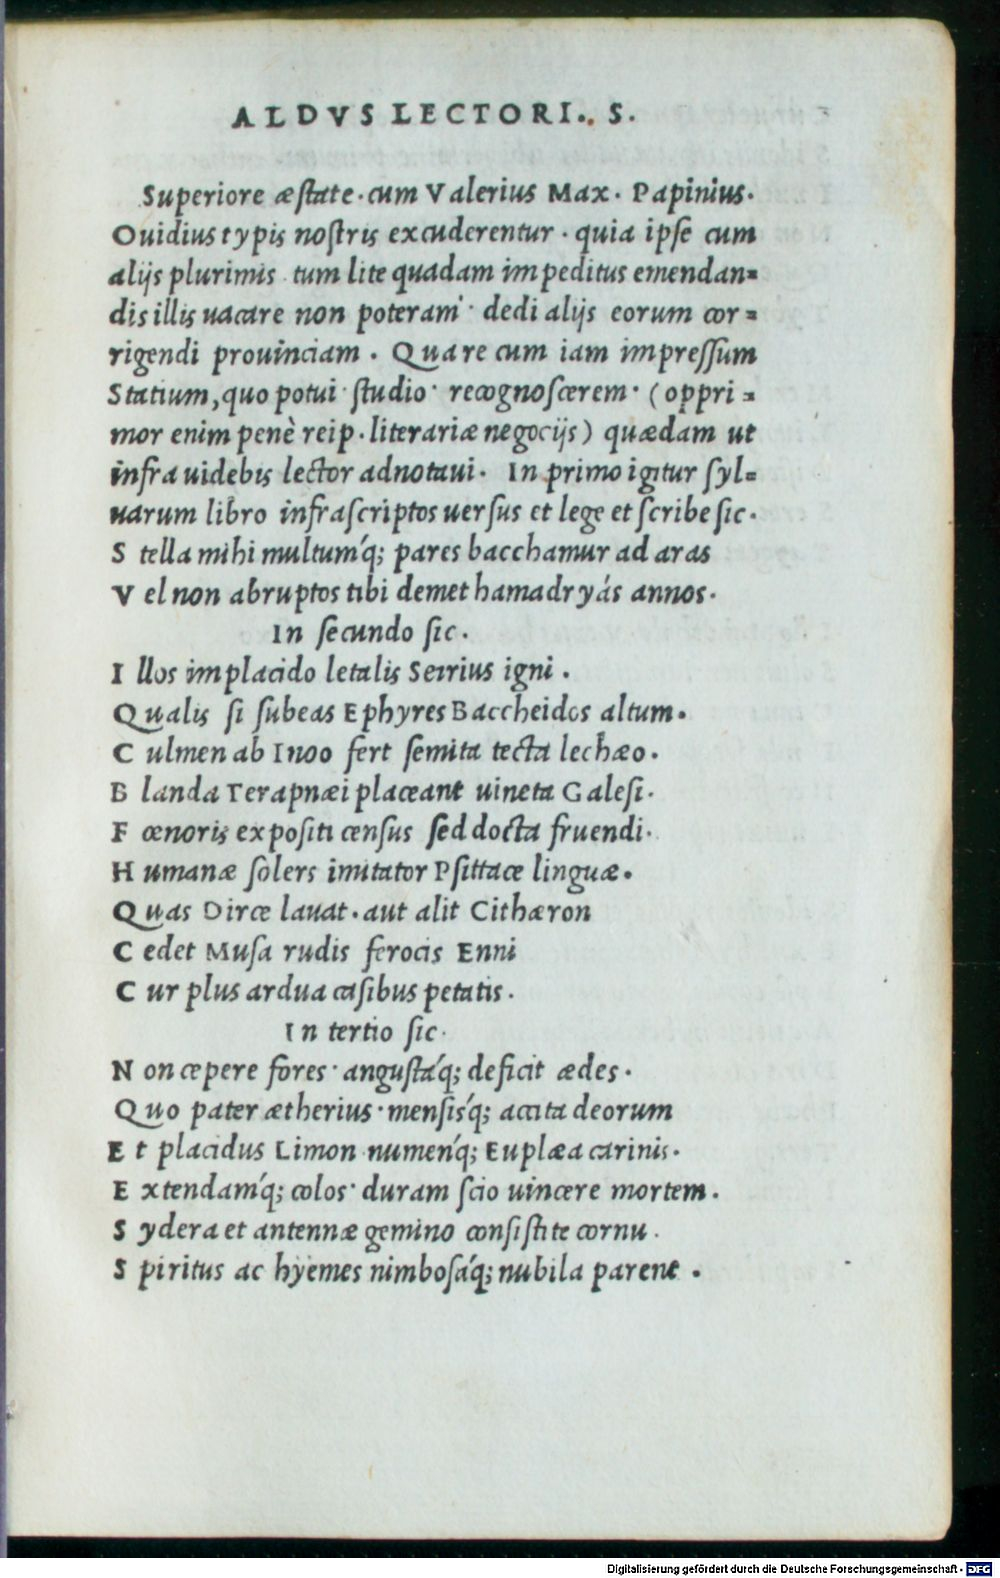 ALDVS LECTORI.. S.
Superiore æstate·cum Valerius Max· Papinius·
Ouidius typis nostris excuderentur· quia ipse cum
alijs plurimis tum lite quadam impeditus emendan=
dis illis uacare non poteram· dedi alijs eorum cor=
rigendi prouinciam. Quare cum iam impressum
Statium, quo potui·studio· recognoscerem· (oppri=
mor enim penè reip·literariæ negocijs) quædam ut
infra uidebis lector adnotaui· In primo igitur syl=
uarum libro infrascriptos uersus et lege et scribe sic·
S tella mihi multum'q; pares bacchamur ad aras
V el non abruptos tibi demet hamadryás annos·
In secundo sic·
I llos implacido letalis Seirius igni.
Qualis si subeas Ephyres Baccheidos altum.
C ulmen ab Inoo fert semita tecta lechæo·
B landa Terapnæi placeant uineta Galesi·
F oenoris expositi census sed docta fruendi·
H umanæ solers imitator Psittace linguæ.
Quas Dirce lauat·aut alit Cithæron
C edet Musa rudis ferocis Enni
C ur plus ardua casibus petatis·
In tertio sic·
N on cepere fores· angustá'q; deficit ædes·
Quo pater ætherius·mensis'q; accita deorum
E t placidus Limon numen'q; Euplæa carinis·
E xtendam'q; colos· duram scio uincere mortem·
S ydera et antennæ gemino consistite cornu·
S piritus ac hyemes nimbosá'q; nubila parent·
Digitalisierung gefördert durch die Deutsche Forschungsgemeinschaft - DFG